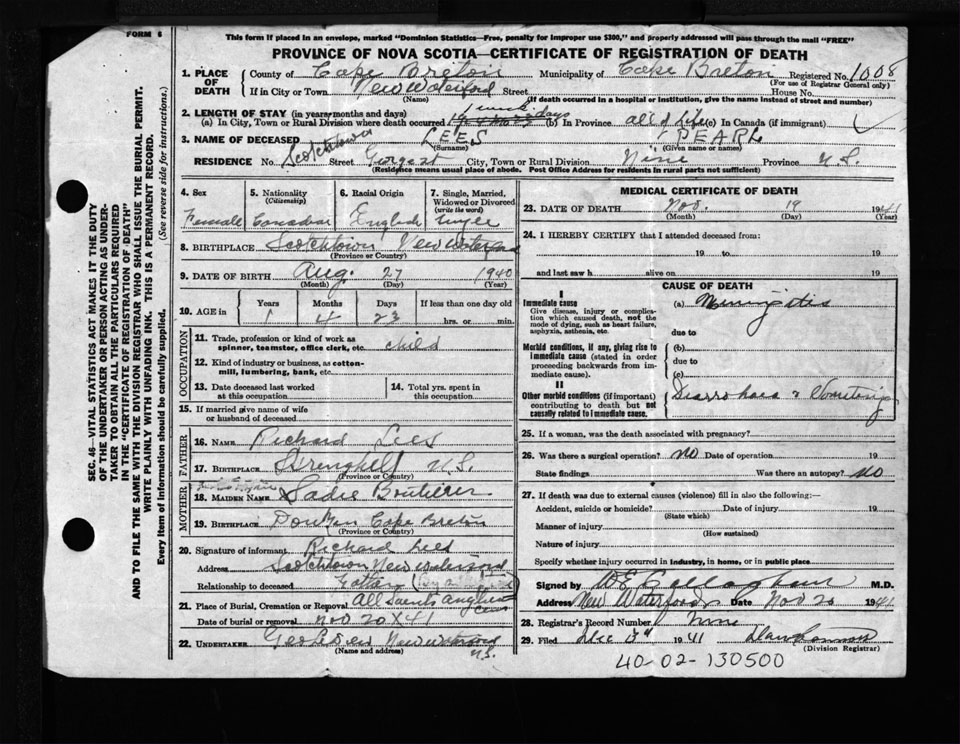 FORM 6
This form If placed in an envelope, marked "Dominion Statistics—Free, penalty for improper use $300," and properly addressed will pass through the mail "FREE"
PROVINCE OF NOVA SCOTIA—CERTIFICATE OF REGISTRATION OF DEATH
SEC. 46—VITAL STATISTICS ACT MAKES IT THE DUTY
OF THE UNDERTAKER OR PERSON ACTING AS UNDER-
TAKER TO OBTAIN ALL THE PARTICULARS REQUIRED
IN THE "CERTIFICATE OF REGISTRATION OF DEATH"
AND TO FILE THE SAME WITH THE DIVISION REGISTRAR WHO SHALL ISSUE THE BURIAL PERMIT.
WRITE PLAINLY WITH UNFADING INK. THIS IS A PERMANENT RECORD.
Every item of Information should be carefully supplied. (See reverse side for instructions.)
1. PLACE OF DEATH
County of Cape Breton Municipality of Cape Breton Registered No. 1008
(For use of Registrar General only)
If in City or Town New Waterford Street House No.
(Name) (If death occurred in a hospital or institution, give the name instead of street and number)
2. LENGTH OF STAY (in years, months and days)
(a) In City, Town or Rural Division where death occurred (b) In Province all of life (c) In Canada (if immigrant)
3. NAME OF DECEASED LEES PEARL
(Surname) (Given name or names)
RESIDENCE No. Scotchtown Street George st City, Town or Rural Division Province N.S.
(Residence means usual place of abode. Post Office Address for residents in rural parts not sufficient)
4. Sex
Female
5. Nationality
(Citizenship)
Canadian
6. Racial Origin
English
7. Single, Married, Widowed or Divorced
(write the word)
Single
8. BIRTHPLACE Scotchtown New Waterford
(Province or Country)
9. DATE OF BIRTH Aug. 27 1940
(Month) (Day) (Year)
10. AGE in
Years Months Days If less than one day old
1 4 23 hrs. or min.
OCCUPATION
11. Trade, profession or kind of work as
spinner, teamster, office clerk, etc. child
12. Kind of industry or business, as cotton-
mill, lumbering, bank, etc.
13. Date deceased last worked
at this occupation
14. Total yrs. spent in
this occupation
15. If married give name of wife
or husband of deceased
FATHER
16. NAME Richard Lees
17. BIRTHPLACE N.S.
(Province or Country)
MOTHER
18. MAIDEN NAME Sadie Boutilier
19. BIRTHPLACE Donkin Cape Breton
(Province or Country)
20. Signature of informant Richard Lees
Address Scotchtown New Waterford
Relationship to deceased Father
21. Place of Burial, Cremation or Removal All Saints Anglican Cem
Date of burial or removal Nov 20 41
22. UNDERTAKER New Waterford N.S.
(Name and address)
MEDICAL CERTIFICATE OF DEATH
23. DATE OF DEATH Nov. 19 1941
(Month) (Day) (Year)
24. I HEREBY CERTIFY that I attended deceased from:
19 to 19
and last saw h alive on 19
CAUSE OF DEATH
I
Immediate cause
Give disease, injury or complica-
tion which caused death, not the
mode of dying, such as heart failure,
asphyxia, asthenia, etc.
(a) Meningitis
due to
Morbid conditions, if any, giving rise to
immediate cause (stated in order
proceeding backwards from im-
mediate cause).
(b)
due to
(c)
II
Other morbid conditions (if important)
contributing to death but not
causally related to immediate cause.
Diarrhoea & Vomiting
25. If a woman, was the death associated with pregnancy?
26. Was there a surgical operation? no Date of operation 19
State findings Was there an autopsy? no
27. If death was due to external causes (violence) fill in also the following:—
Accident, suicide or homicide? Date of injury 19
(State which)
Manner of injury
(How sustained)
Nature of injury
Specify whether injury occurred in industry, in home, or in public place
Signed by M.D.
Address New Waterford Date Nov 20 1941
28. Registrar's Record Number
29. Filed Dec 3rd 1941
(Division Registrar)
40-02-130500